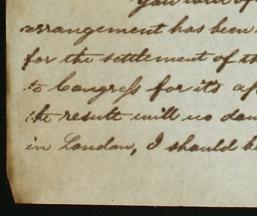 You will
arrangement has been
for the settlement of th
to Congress for its ap
the result will no dou
in London, I should be